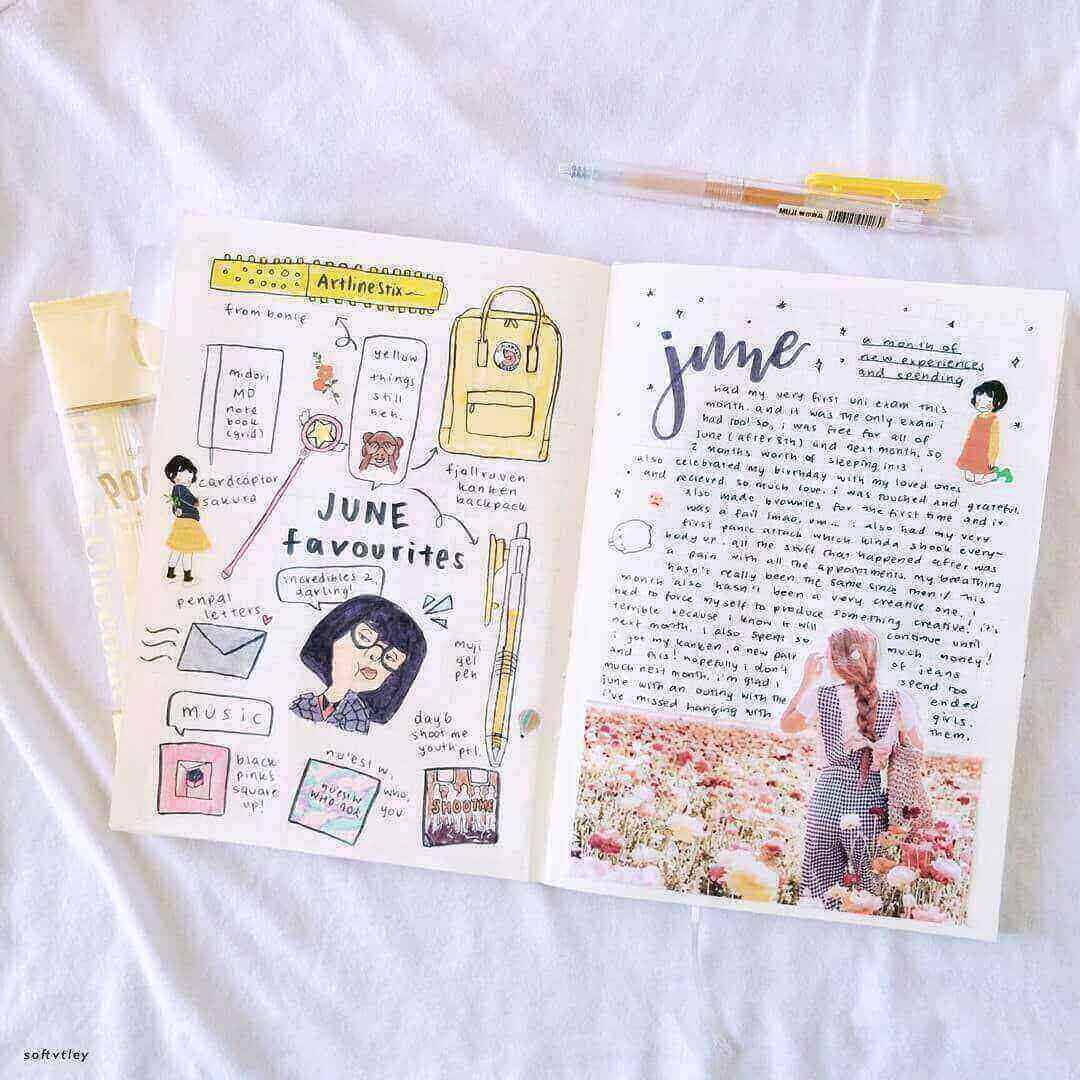 MUJI 無印良品
ArtlineStix
from bonie
midori
MD
note
book
(grid)
yellow
things
still
heh.
fjallraven
kanken
backpack
cardcaptor
sakura
JUNE
favourites
incredibles 2
darling!
penpal
letters
muji
gel
pen
music
black
pink's
square
up!
nu'est w.
who,
you
NU'EST W
WHO, YOU
day6
shoot me
youth pt1.
SHOOT ME
june
a month of
new experiences
and spending
had my very first uni exam this
month. and it was the only exam i
had too! so, i was free for all of
june (after 8th) and next month. so
2 months worth of sleeping in :3 i
also celebrated my birthday with my loved ones
and recieved so much love. i was touched and grateful.
also made brownies for the first time and it
was a fail lmao, um... i also had my very
first panic attack which kinda shook every-
body up. all the stuff that happened after was
a pain with all the appointments. my breathing
hasn't really been the same since then :/ this
month also hasn't been a very creative one. i
had to force myself to produce something creative! it's
terrible because i know it will continue until
next month. i also spent so much money!
i got my kanken, a new pair of jeans
and this! hopefully i don't spend too
much next month. i'm glad i ended
june with an outing with the girls.
i've missed hanging with them.
softvtley